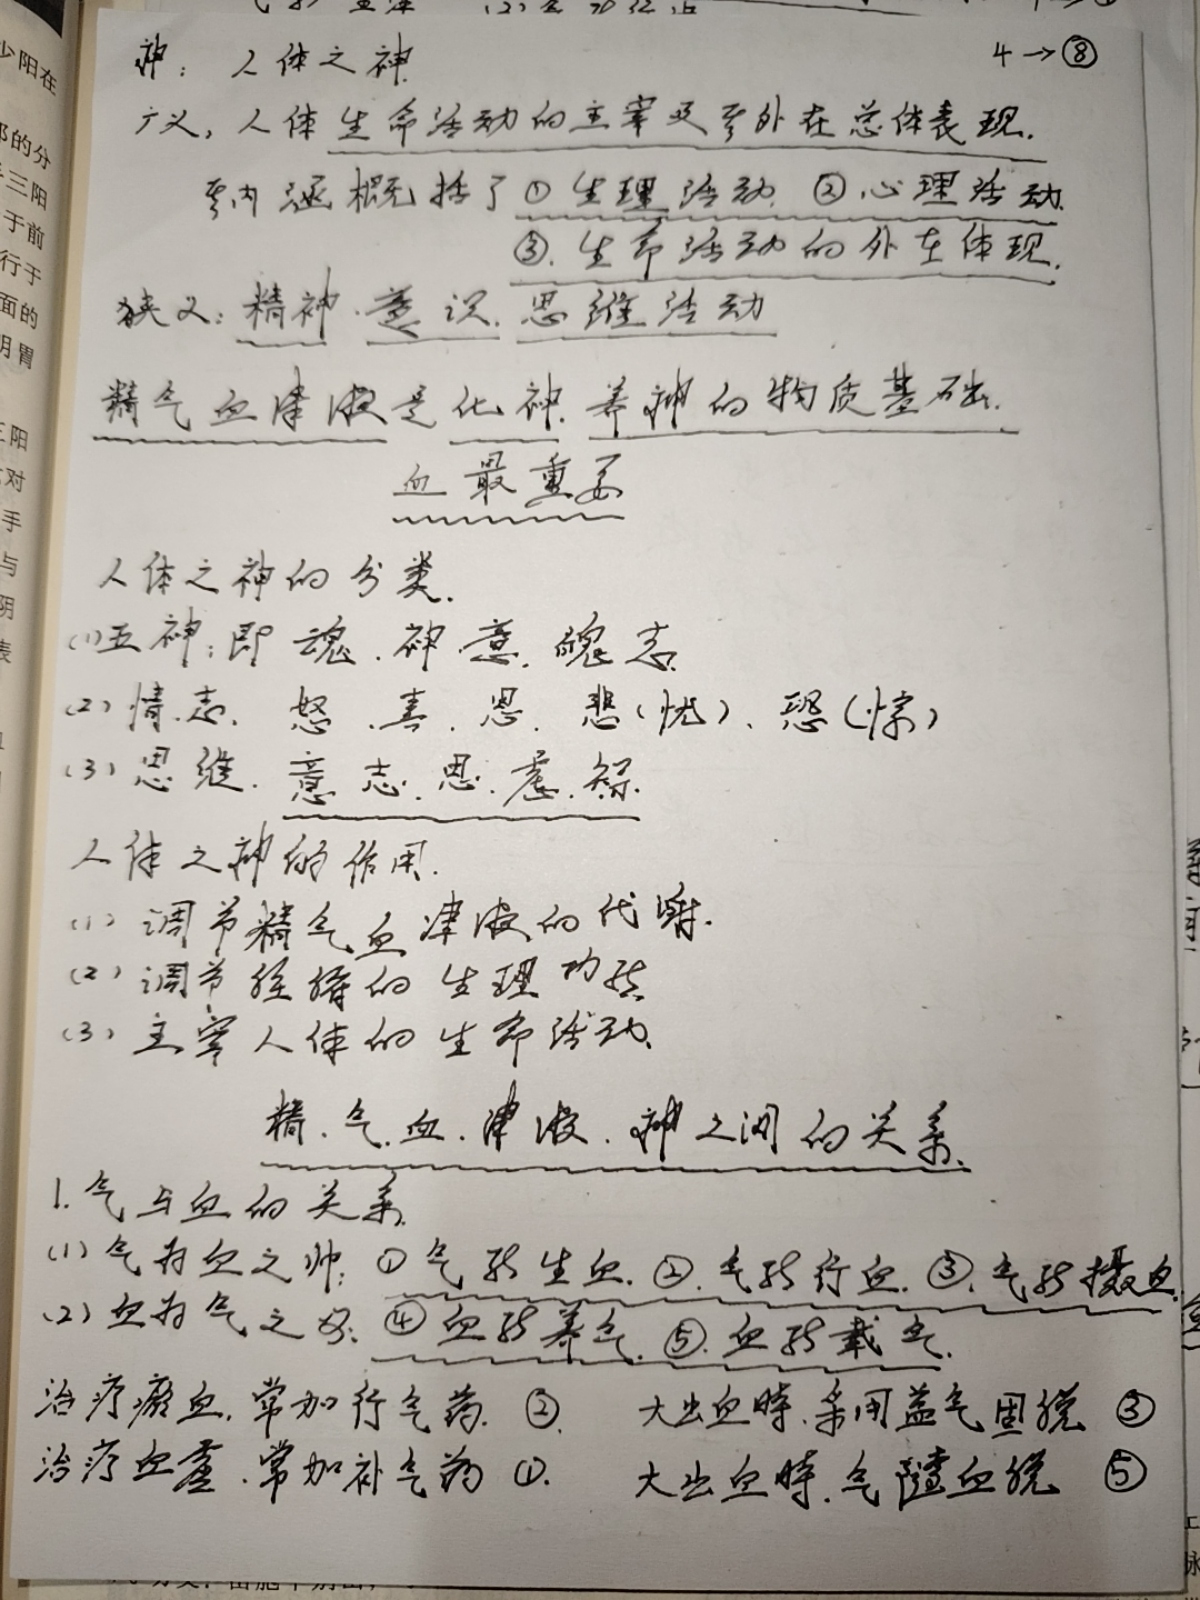 神：人体之神
4→⑧
广义，人体生命活动的主宰及其外在总体表现.
其内涵概括了①生理活动. ②心理活动.
③.生命活动的外在体现.
狭义：精神.意识.思维活动
精气血津液是化神.养神的物质基础.
血最重要
人体之神的分类.
(1)五神：即魂.神.意.魄.志.
(2)情志. 怒.喜.思.悲(忧)、恐(惊)
(3)思维.意.志.思.虑.智.
人体之神的作用.
(1)调节精气血津液的代谢.
(2)调节脏腑的生理功能
(3)主宰人体的生命活动.
精.气.血.津液.神之间的关系.
1.气与血的关系.
(1)气为血之帅：①气能生血.②.气能行血.③.气能摄血.
(2)血为气之母：④血能养气.⑤.血能载气.
治疗瘀血.常加行气药.②. 大出血時.采用益气固脱③
治疗血虚.常加补气药①. 大出血時.气随血脱⑤
少阳在
的分
三阳
于前
行于
面的
明胃
三阳
对
手
与
阴
表